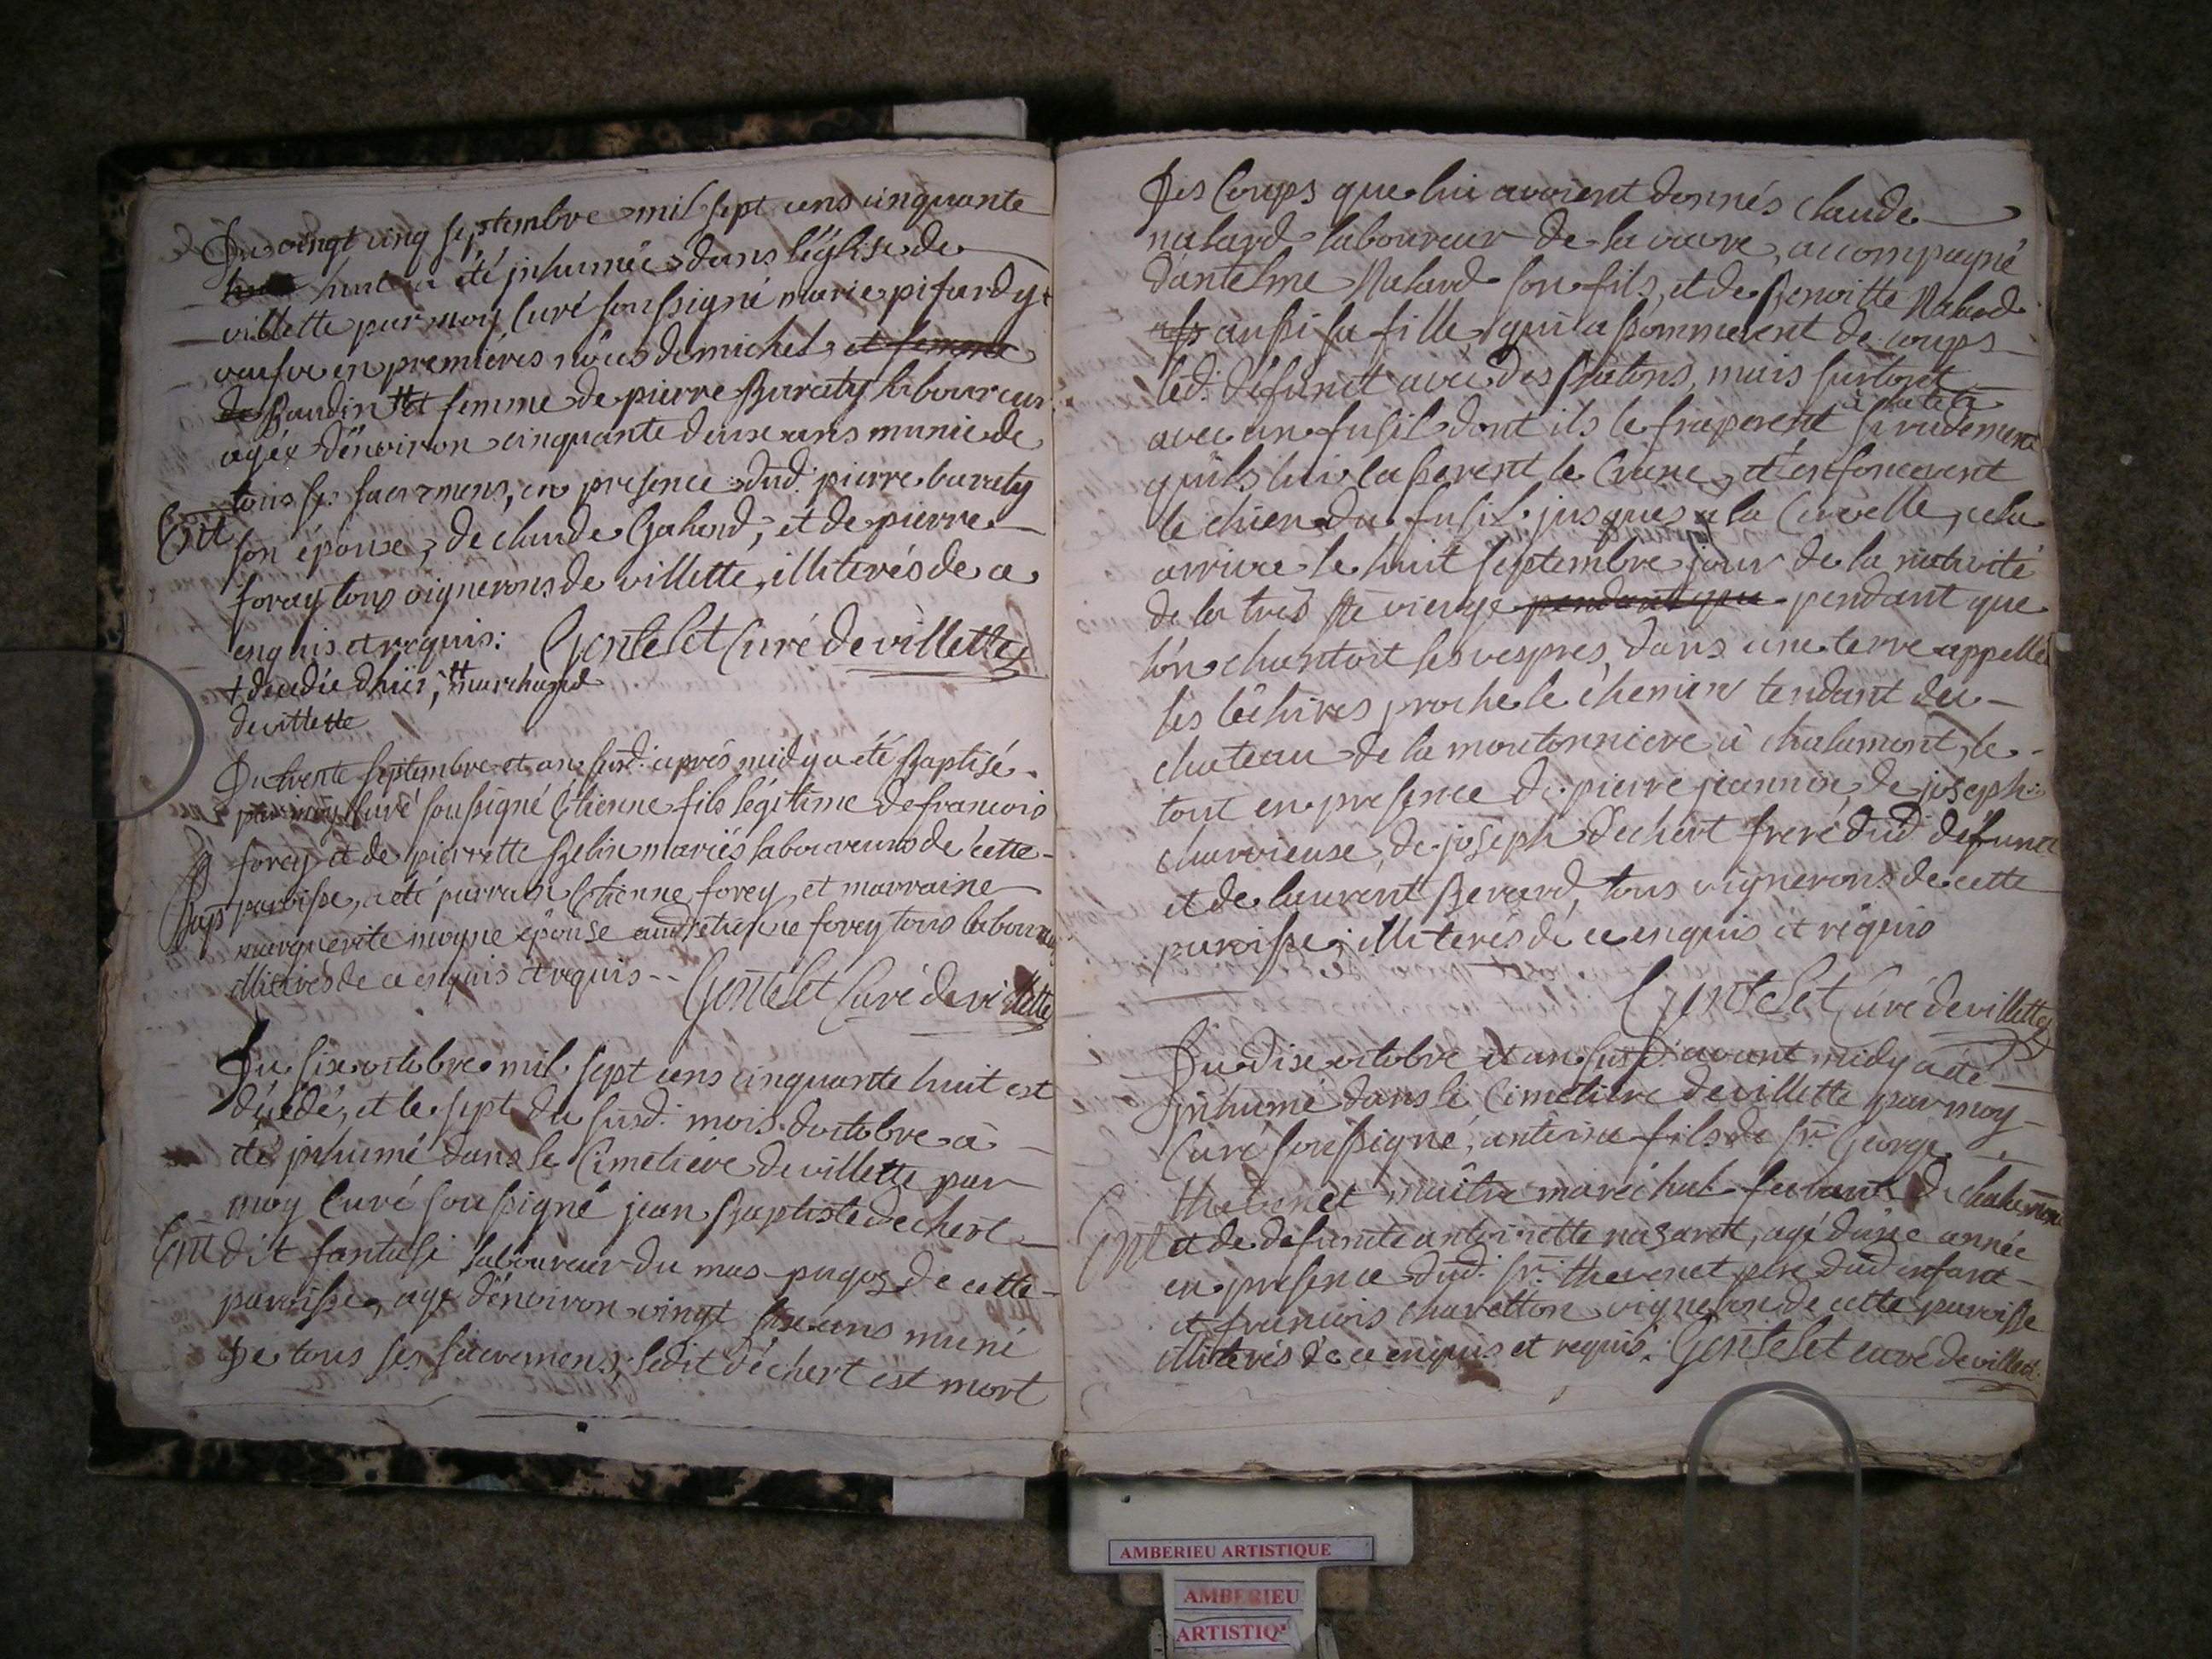 Du vingt cinq septembre mil sept cens cinquante
huit a été inhumée dans l'église de
villette par moy Curé soussigné marie pifardy +
veufve en premières nôces de michel et femme
de Baudin ++ et femme de pierre Buraty laboureur
agée d'environ cinquante deux ans munie de
tous ses sacremens, en presence dud. pierre buraty
Ent
son épouse, de claude Gahand, et de pierre
foray tous vignerons de villette, illiterés de ce
enquis et requis: Gontelet Curé de villette
+ décédée d'hier, ++ marchand
de villette
Du trente septembre et an susd. après midy a été Baptisé
par moy Curé soussigné Etienne fils légitime de francois
forey et de pierrette Belin mariés laboureurs de cette
Bap
paroisse, a été parrain Etienne forey, et marraine
marguerite moyne épouse aud. etienne forey tous laboureurs
illiterés de ce enquis et requis -- Gontelet Curé de villette
Du six octobre mil sept cens cinquante huit est
décédé, et le sept du susd. mois d'octobre a
été inhumé dans le Cimetière de villette par
moy Curé soussigné jean Baptiste dechert
Ent
dit fantasi laboureur du mas pagos de cette
paroisse, agé d'environ vingt six ans muni
de tous ses sacremens, ledit déchert est mort
Des Coups que lui avoient donnés claude
nalard laboureur de la vavre, accompagné
d'antelme Nalard son fils, et de Benoitte Nalard
aussi sa fille, qui assommerent de coups
led. défunct avec des bâtons, mais surtout
avec un fusil dont ils le fraperent à la tete si rudement
qu'ils lui casserent le Crane, et enfoncerent
le chien du fusil jusques a la Cervelle, cela
arriva le huit septembre jour de la nativité
de la très ste vierge pendant que pendant que
l'on chantoit les vespres, dans une terre appellée
les léchires proche le chemin tendant du
chateau de la moutonniere à chalamont, le
tout en presence de pierre jeannin de joseph
charvieuse, de joseph Dechert frere dud. défunct
et de laurent Berard, tous vignerons de cette
paroisse, illiterés de ce enquis et requis
Gontelet Curé de villette
Du dix octobre et an susd. avant midy a été
Inhumé dans le Cimetiere de villette par moy
Curé soussigné, antoine fils de Sr. George
thevenet maître maréchal ferrant de chalamont
Ent
et de défuncte antoinette nazarett, agé d'une année
en presence dud. Sr. thevenet pere dud. enfant
et francois charetton vigneron de cette paroisse
illiterés de ce enquis et requis. Gontelet curé de villette
AMBERIEU ARTISTIQUE
AMBERIEU
ARTISTIQ